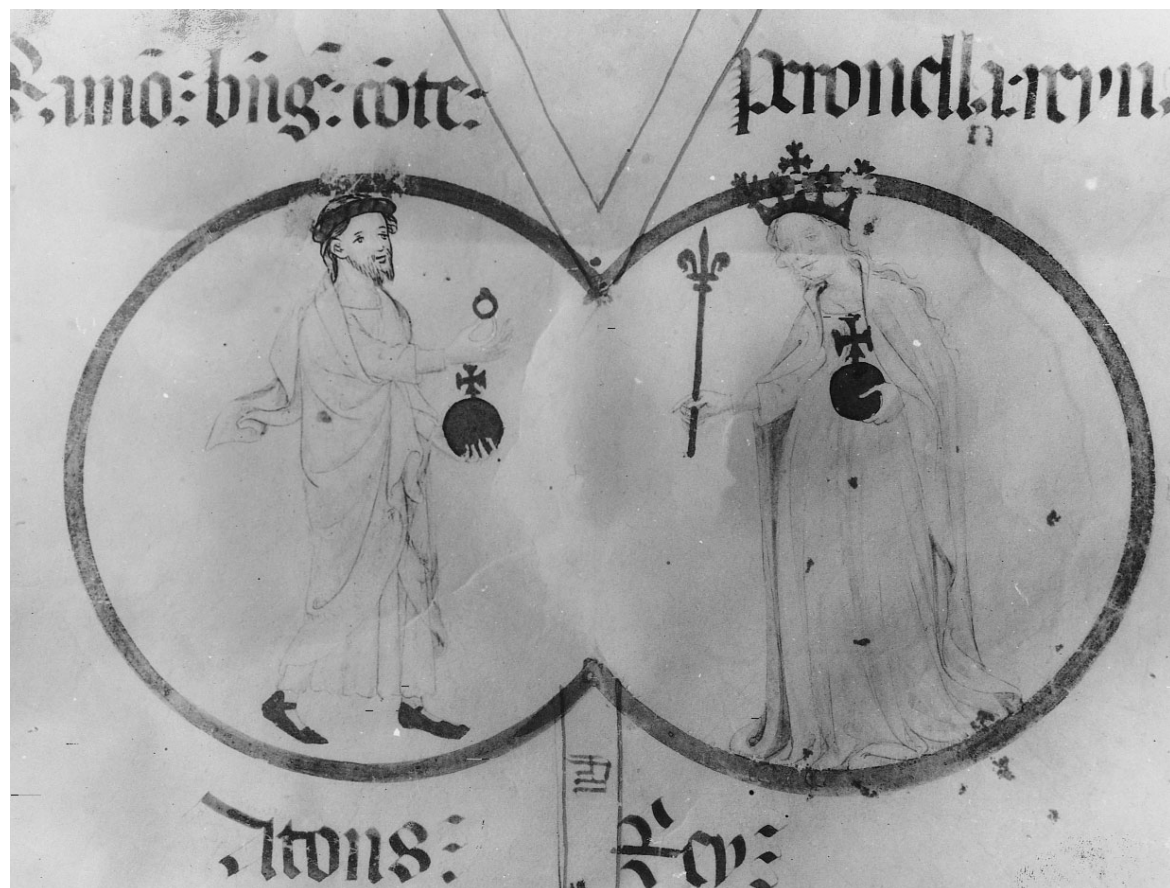 Ramō: bñg: cōte:
peronella: reyna
fill
Alfons:
Rey: